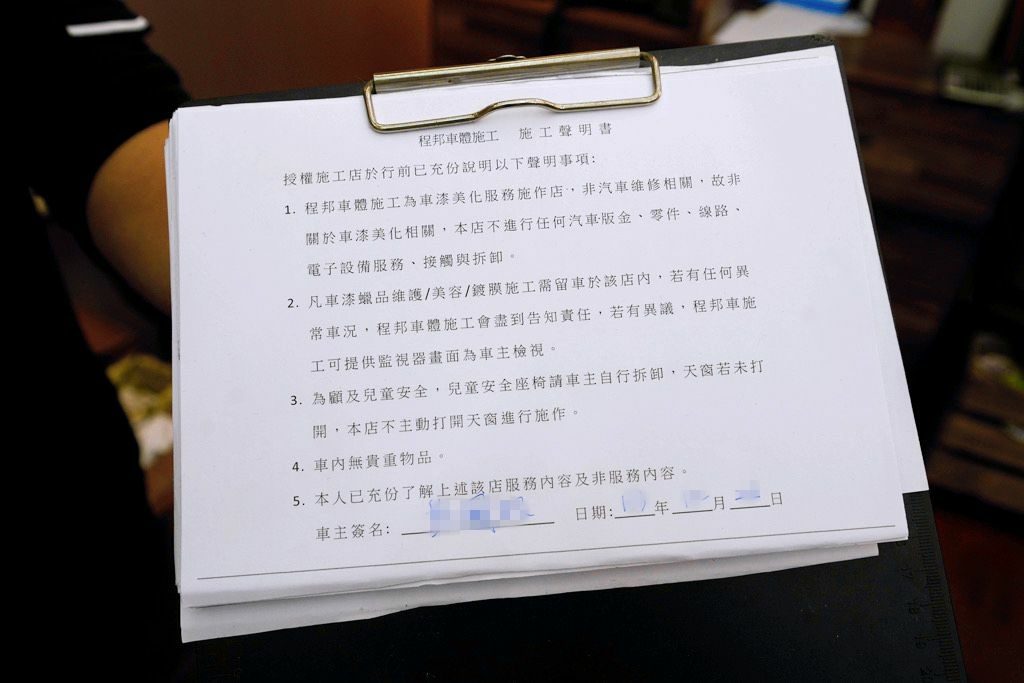 程邦車體施工 施工聲明書
授權施工店於行前已充份說明以下聲明事項:
1. 程邦車體施工為車漆美化服務施作店，非汽車維修相關，故非
關於車漆美化相關，本店不進行任何汽車版金、零件、線路、
電子設備服務、接觸與拆卸。
2. 凡車漆蠟品維護/美容/鍍膜施工需留車於該店內，若有任何異
常車況，程邦車體施工會盡到告知責任，若有異議，程邦車施
工可提供監視器畫面為車主檢視。
3. 為顧及兒童安全，兒童安全座椅請車主自行拆卸，天窗若未打
開，本店不主動打開天窗進行施作。
4. 車內無貴重物品。
5. 本人已充份了解上述該店服務內容及非服務內容。
車主簽名: 日期: 年 月 日